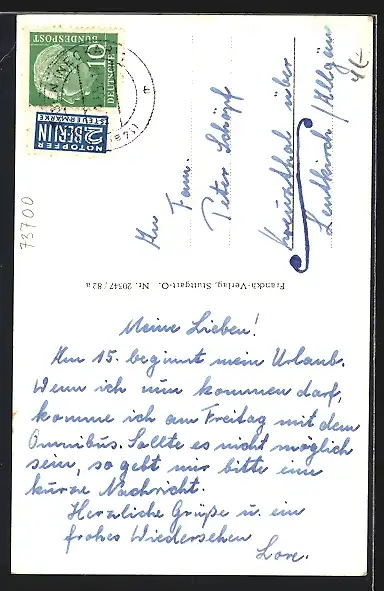 DEUTSCHE
BUNDESPOST
10
NOTOPFER
2 BERLIN
STEUERMARKE
An Fam.
Peter Schöpf
Kreuzthal über
Leutkirch / Allgäu
4€
73700
Franckh-Verlag, Stuttgart-O. Nr. 20347/82a
Meine Lieben!
Am 15. beginnt mein Urlaub.
Wenn ich nun kommen darf,
komme ich am Freitag mit dem
Omnibus. Sollte es nicht möglich
sein, so gebt mir bitte eine
kurze Nachricht.
Herzliche Grüße u. ein
frohes Wiedersehen
Lore.